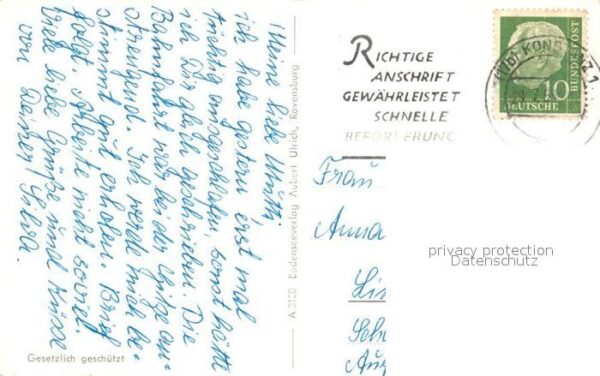 Meine liebe Mutti,
ich habe gestern erst mal
tüchtig ausgeschlafen, sonst hätte
ich Dir gleich geschrieben. Die
Bahnfahrt war bei der Hitze an-
strengend. Ich werde mich be-
stimmt gut erholen. Brief
folgt. Arbeite nicht soviel.
Viele liebe Grüße und Küsse
von Deiner
Gesetzlich geschützt
A 0120 Bodenseeverlag Aubert Ulrich, Ravensburg
RICHTIGE
ANSCHRIFT
GEWÄHRLEISTET
SCHNELLE
BEFÖRDERUNG
KONSTANZ 1
10
DEUTSCHE
BUNDESPOST
Frau
Anna
privacy protection
Datenschutz